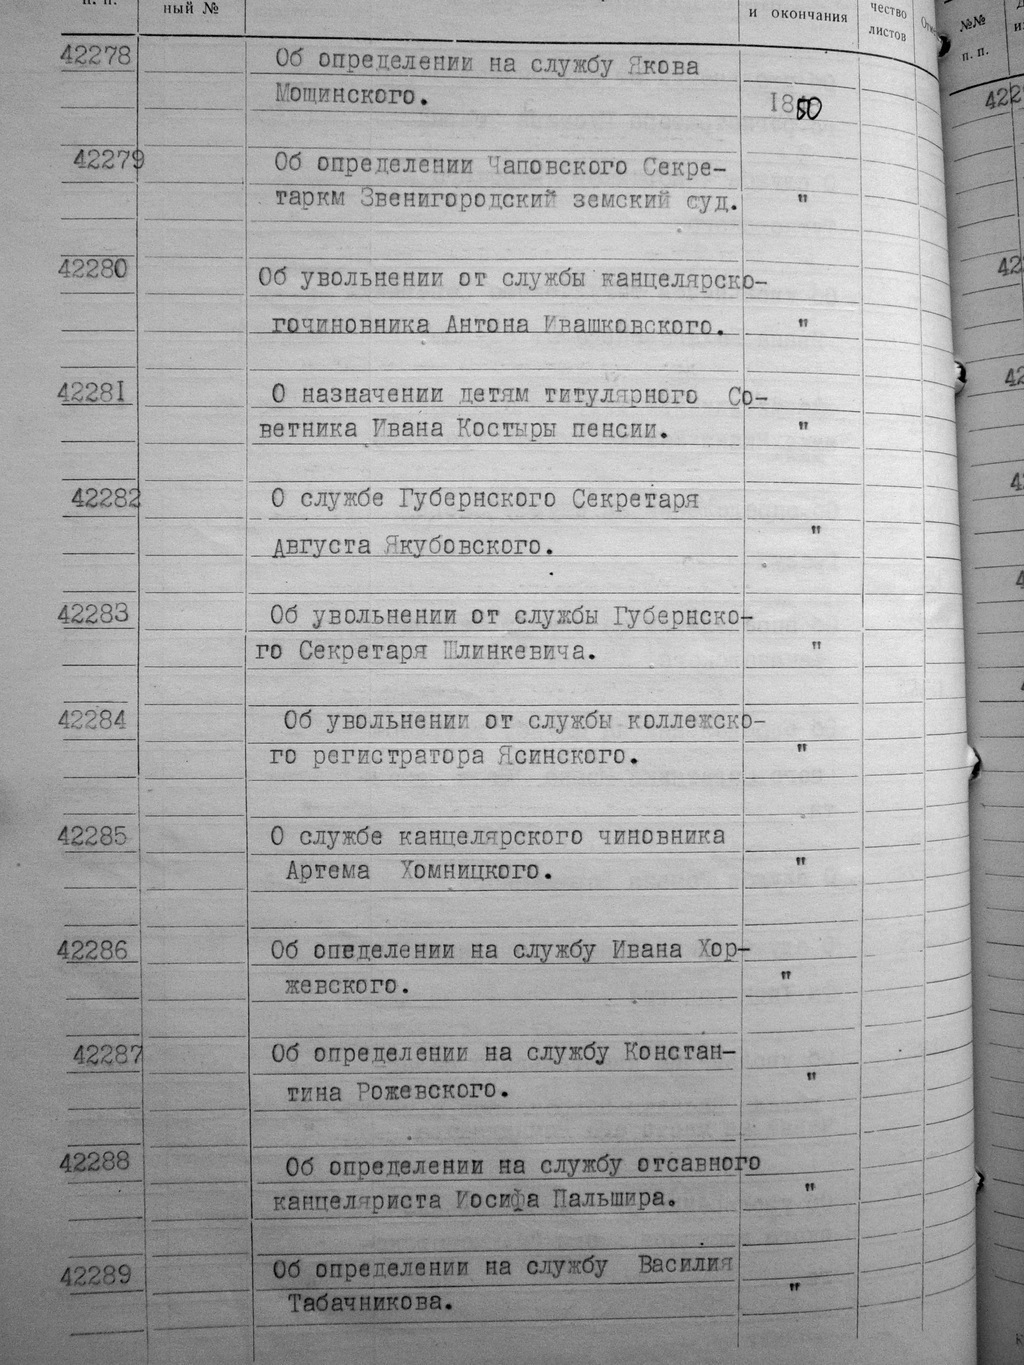 п. п.
ный №
и окончания
чество
листов
№№
п. п.
42278
Об определении на службу Якова
Мощинского.
1850
42279
Об определении Чаповского Секре-
таркм Звенигородский земский суд.
"
42280
Об увольнении от службы канцелярско-
гочиновника Антона Ивашковского.
"
42281
О назначении детям титулярного Со-
ветника Ивана Костыры пенсии.
"
42282
О службе Губернского Секретаря
Августа Якубовского.
"
42283
Об увольнении от службы Губернско-
го Секретаря Шлинкевича.
"
42284
Об увольнении от службы коллежско-
го регистратора Ясинского.
"
42285
О службе канцелярского чиновника
Артема Хомницкого.
"
42286
Об опеделении на службу Ивана Хор-
жевского.
"
42287
Об определении на службу Констан-
тина Рожевского.
"
42288
Об определении на службу отсавного
канцеляриста Иосифа Пальшира.
"
42289
Об определении на службу Василия
Табачникова.
"